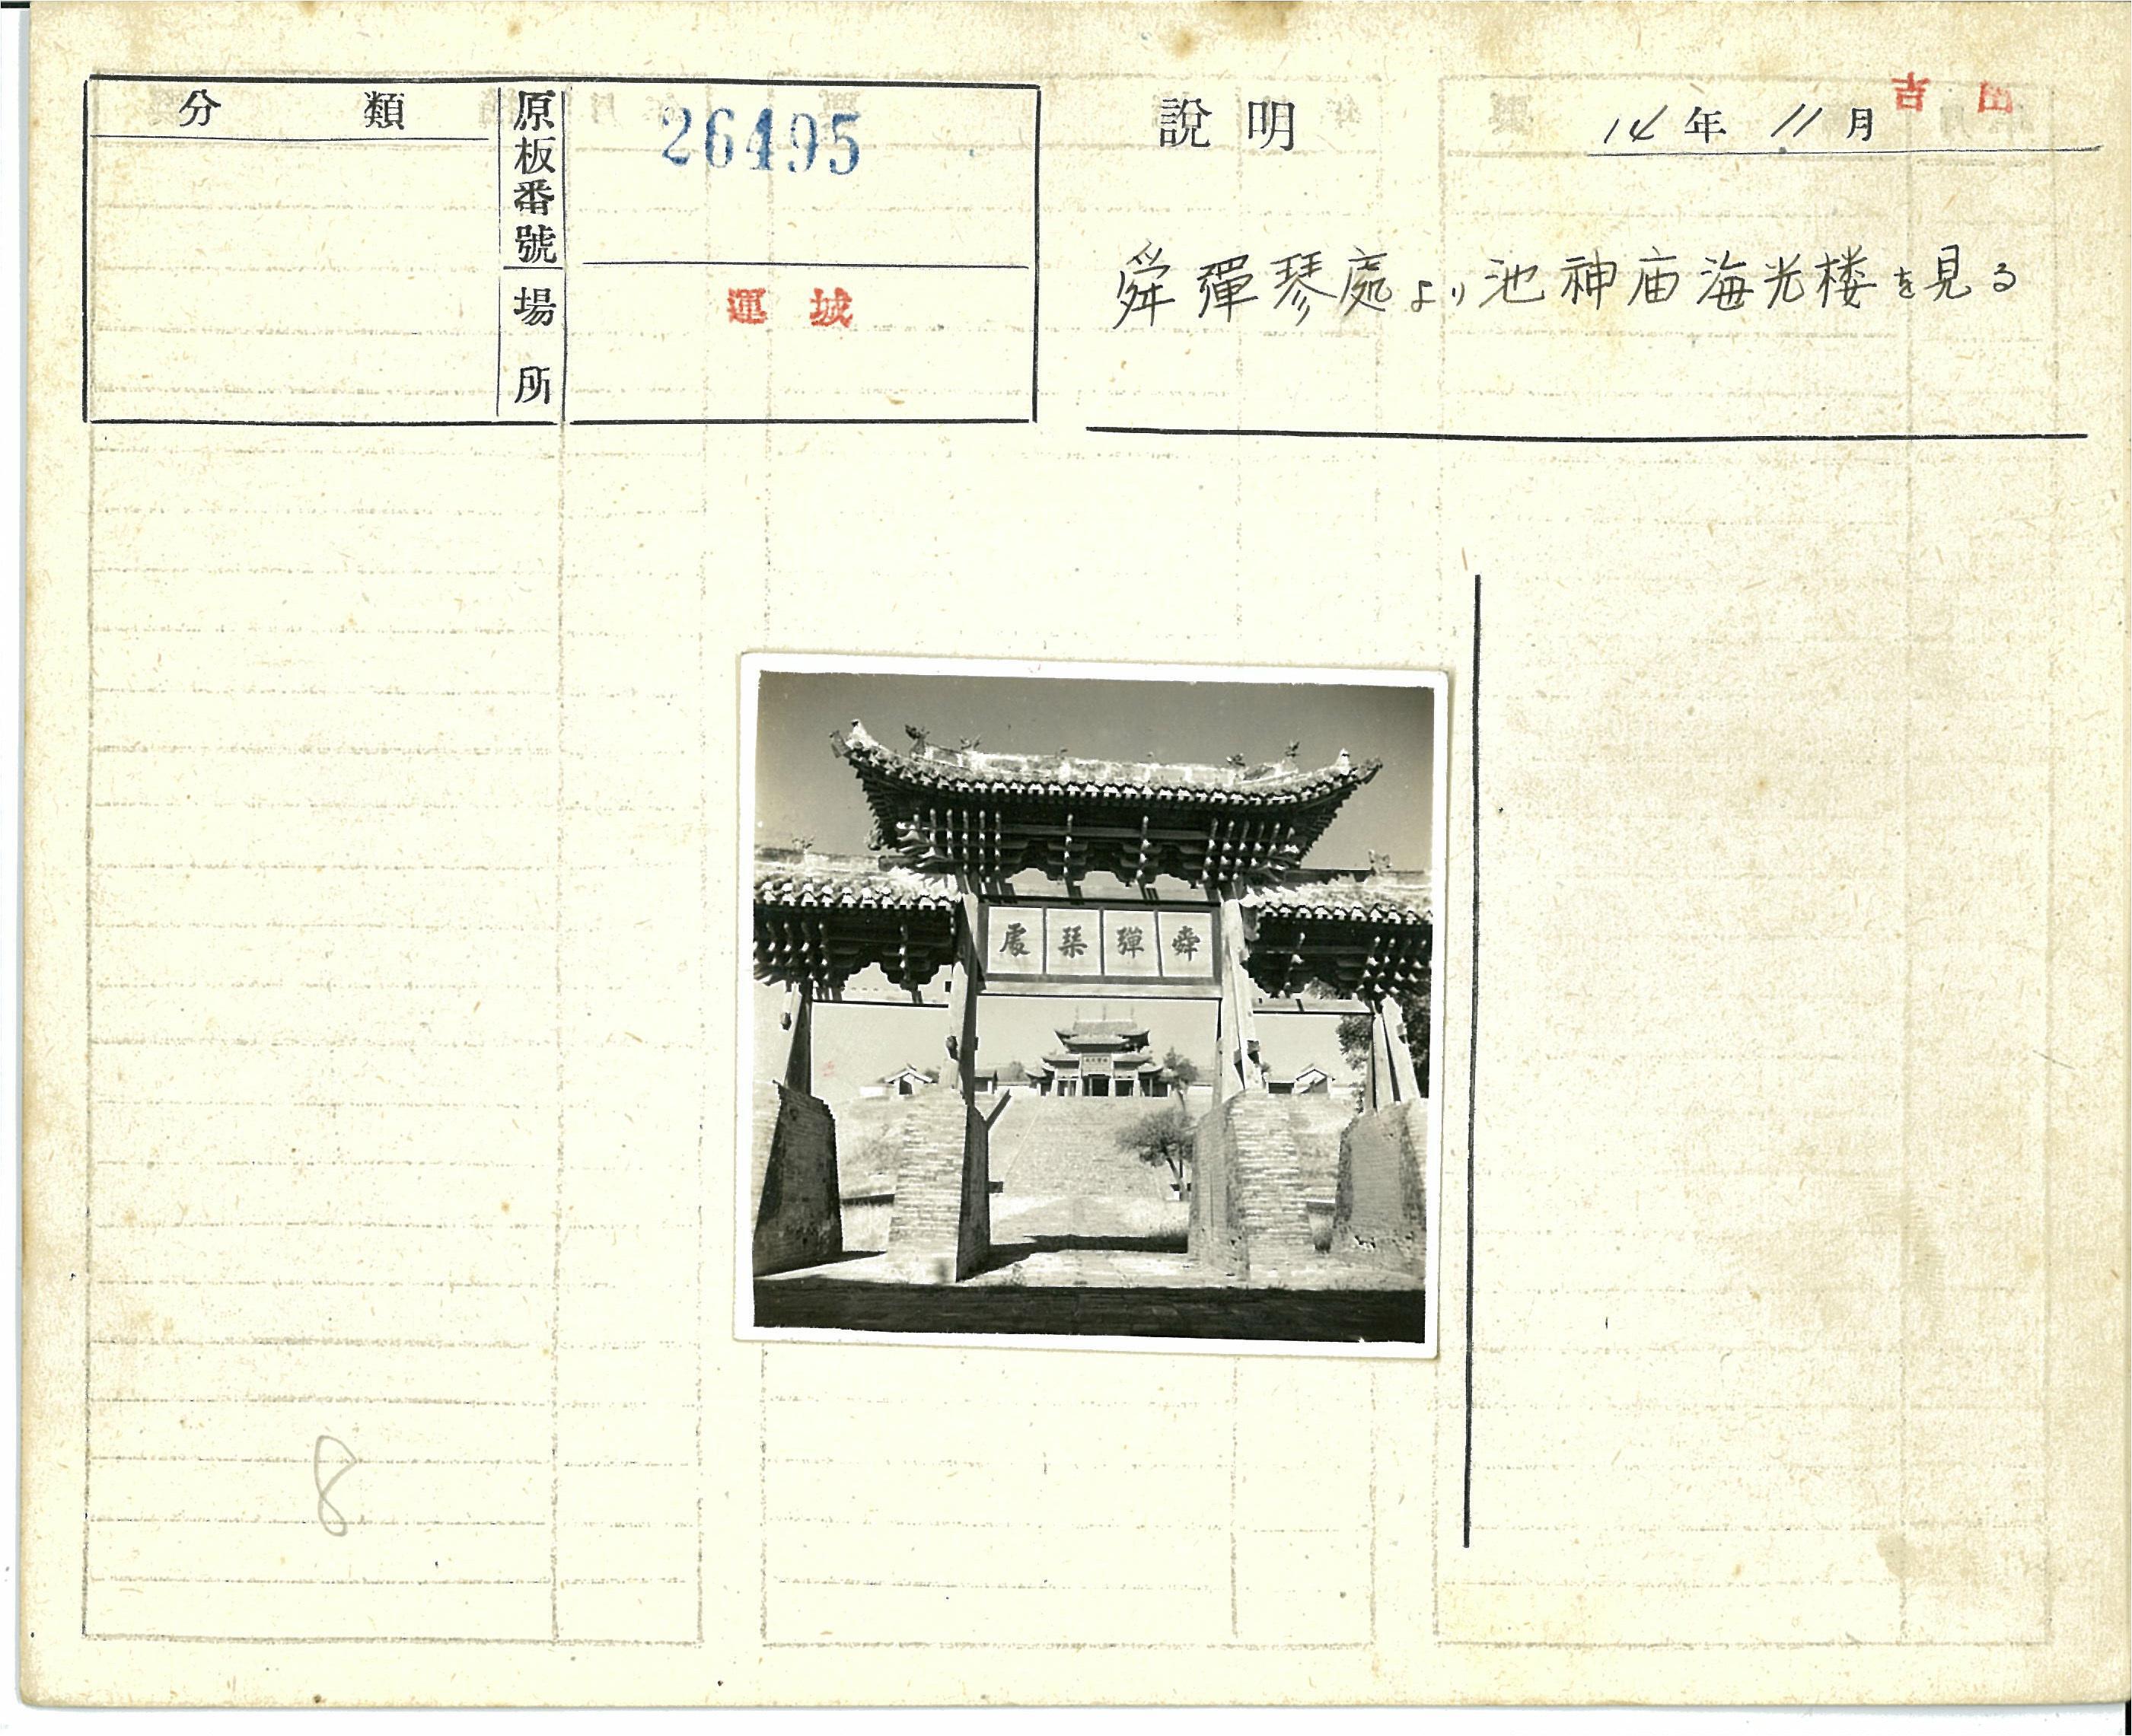 分類
原板番號
26495
場所
運城
說明
14年11月
吉田
舜彈琴處より池神庙海光楼を見る
處琹彈舜
8